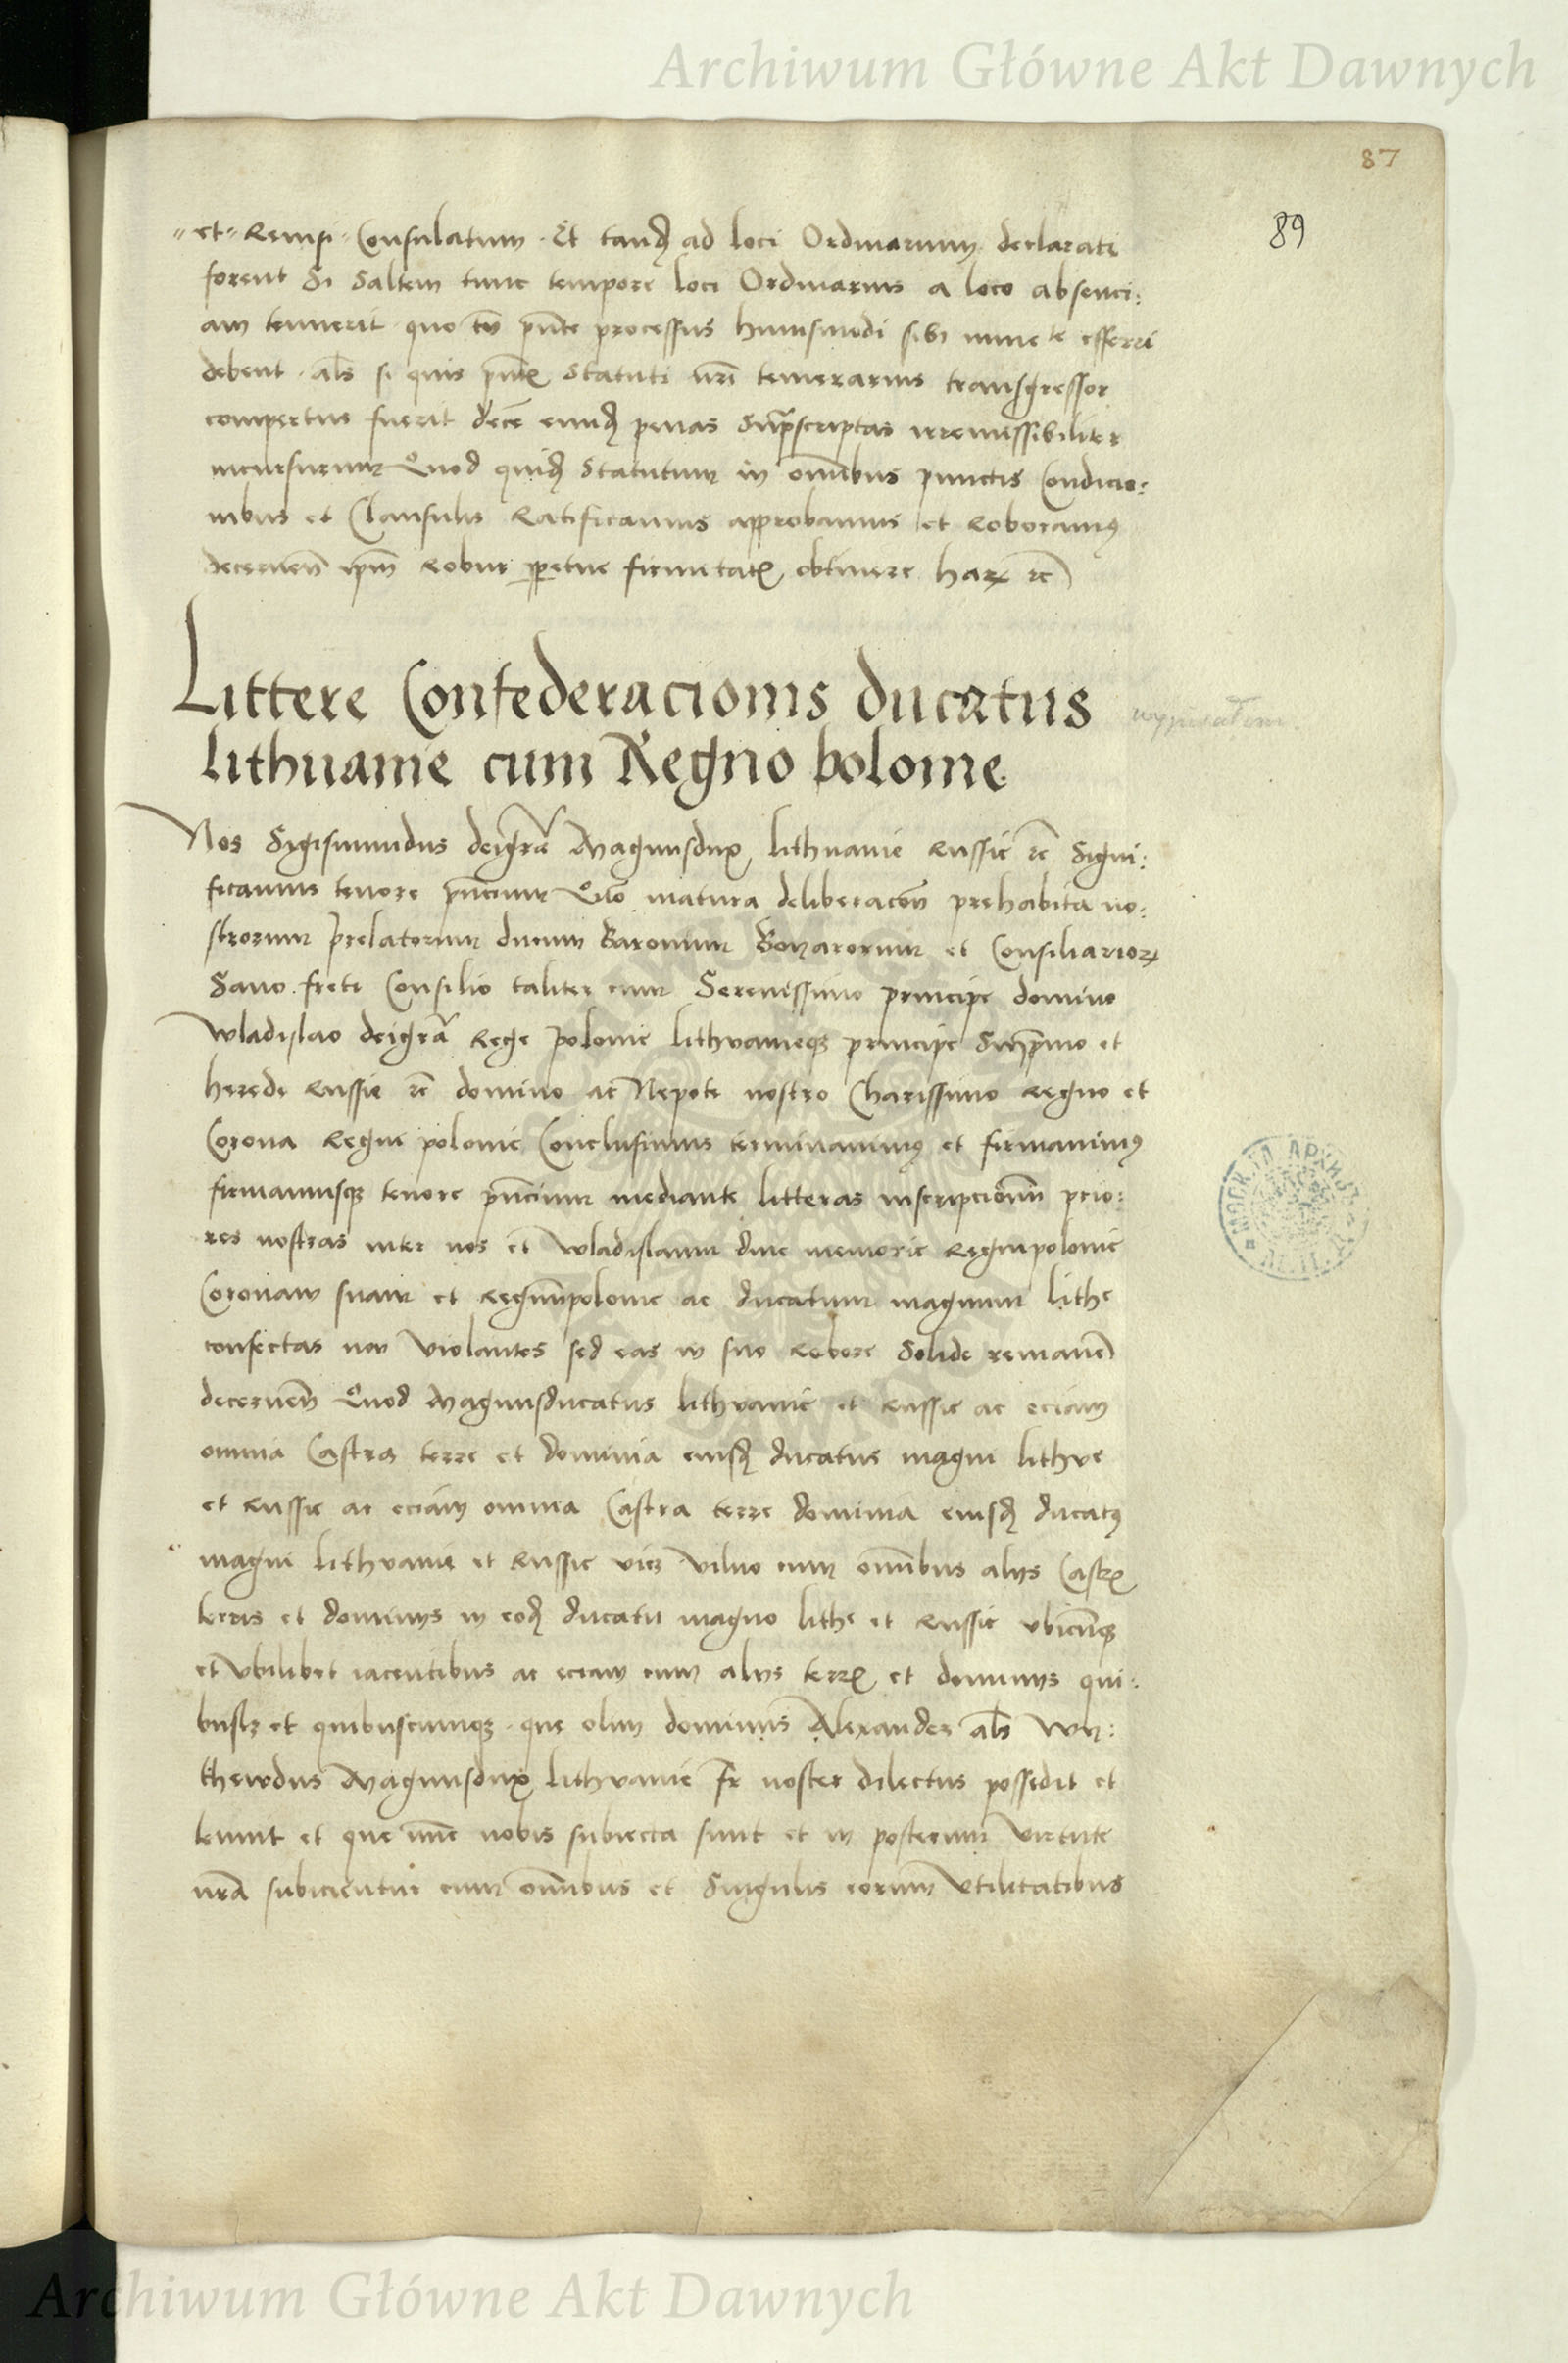 Archiwum Główne Akt Dawnych
87
89
et Rempi Consulatum . Et tandẽ ad loci Ordinarium declarati
forent Si Saltem tunc tempore loci Ordinarius a loco absenci:
am tenuerit quo tñ pñte processus huiusmodi sibi efferri
debent . als si quis pñtis Statuti nri temerarius transgressor
compertus fuerit penas Supᵃscriptas irremissibiliter
incursurum Quod quidẽ Statutum in omĩbus punctis Condicio:
nibus et Clausulis Ratificamus approbamus et Roboramus
decernen ipm Robur ꝑpetue firmitatis obtinere harꝝ rc
Littere Confederacionis ducatus
lithuanie cum Regno bolonie
wypisałem
Nos Sigismundus deigrã Magnusdux lithuanie Russie rc Signi:
ficamus tenore pñcium Quõ matura deliberacõñ prehabita no:
strorum Prelatorum ducum Baronum Boyarorum et Consiliarioꝝ
Sano freti Consilio taliter cum Serenissimo principe domino
Wladislao deigrã Rege Polonie lithuanieqꝫ principe Supᵐo et
herede Russie rc domino ac Nepote nostro Charissimo Regno et
Corona Regni polonie Conclusimus terminauimus et firmauimus
firmamusqꝫ tenore pñcium mediante litteras inscripcionũ prio:
res nostras inter nos et Wladislaum diue memorie Regnipolonie
Coronam suam et Regnũpolonie ac ducatum magnum lithe
confectas non violantes sed eas in suo Robore Solide remanẽ
decernen Quod Magnusducatus lithuanie et Russie ac eciam
omnia Castra terre et dominia eiusdẽ ducatus magni lithue
et Russie ac eciam omnia Castra terre dominia eiusdẽ ducatus
magni lithuanie et Russie vicꝫ Vilno cum omnibus alijs Castris
terris et dominijs in eodẽ ducatu magno lithe et Russie vbicũqꝫ
et vbilibet iacentibus ac eciam cum alijs terris et dominijs qui:
buslꝫ et quibuscumqꝫ . que olim dominus Alexander als Wy:
thewdus Magnusdux lithuanie Fr noster dilectus possedit et
tenuit et que nũc nobis subiecta sunt et in posterum virtute
nrã subicientur cum omnibus et Singulis eorum vtilitatibus
Archiwum Główne Akt Dawnych